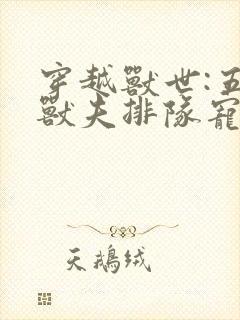 穿越獸世:五
獸夫排隊寵
天鵝絨